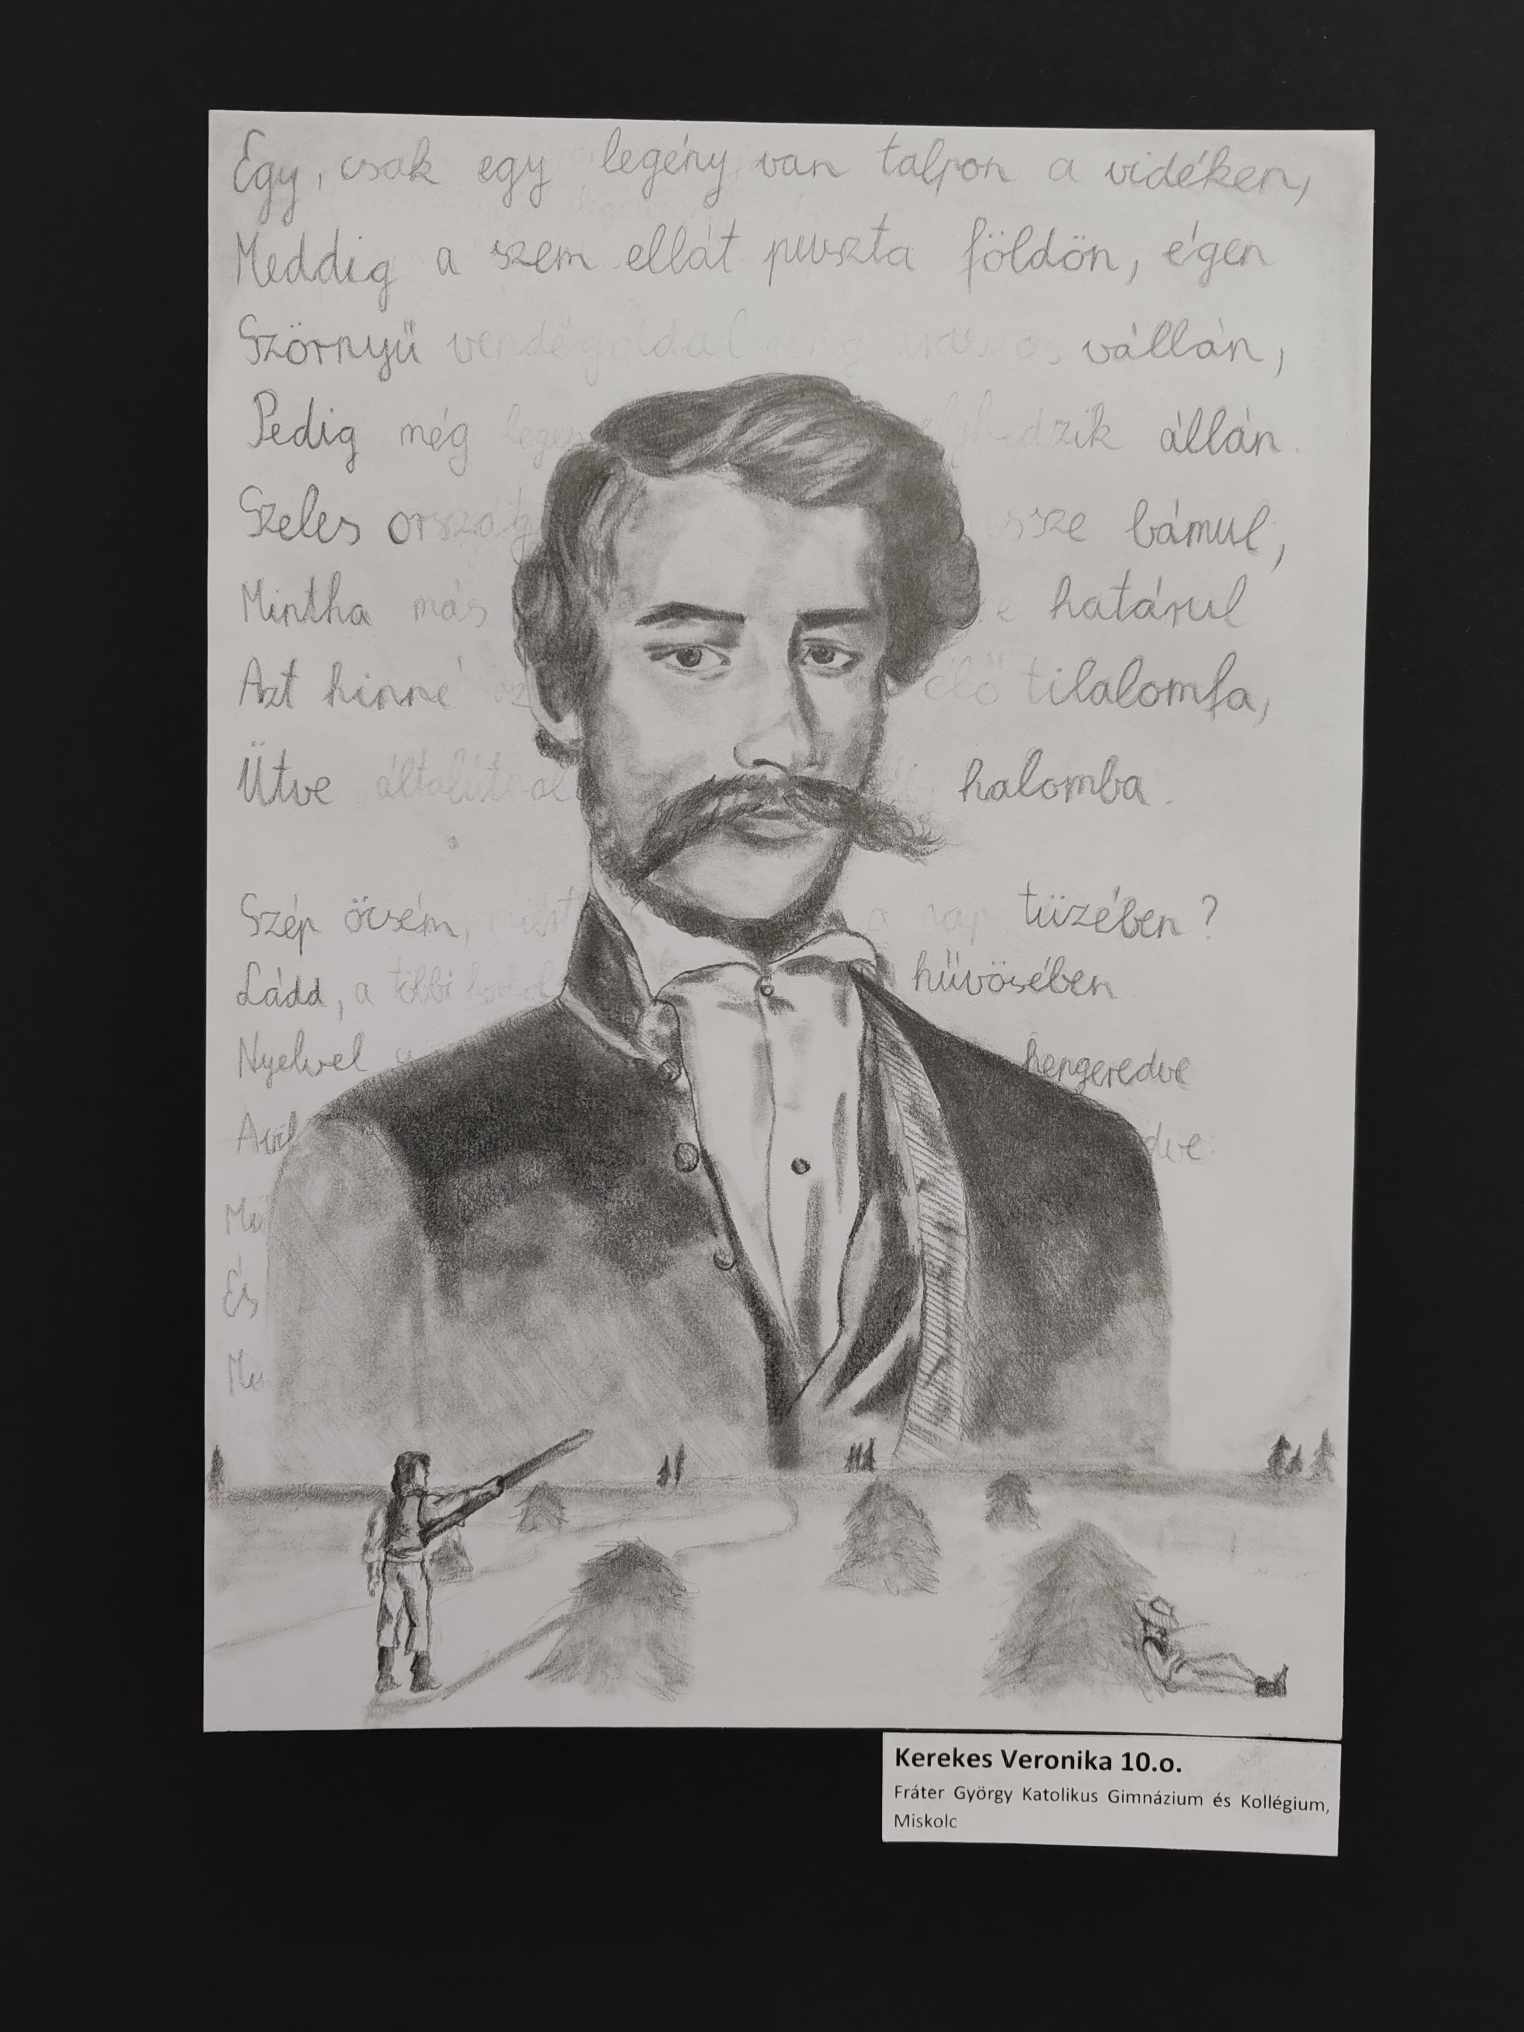 Egy, csak egy legény van talpon a vidéken,
Meddig a szem ellát puszta földön, égen
Szörnyű vendégoldal vállán,
Pedig még állán.
Szeles ország ssze bámul,
Mintha más határul
Azt hinné élő tilalomfa,
Ütve általútnál halomba.
Szép öcsém, miért a nap tüzében?
Ládd, a többi hűvösében
Nyelvel hengeredve
És
Kerekes Veronika 10.o.
Fráter György Katolikus Gimnázium és Kollégium,
Miskolc